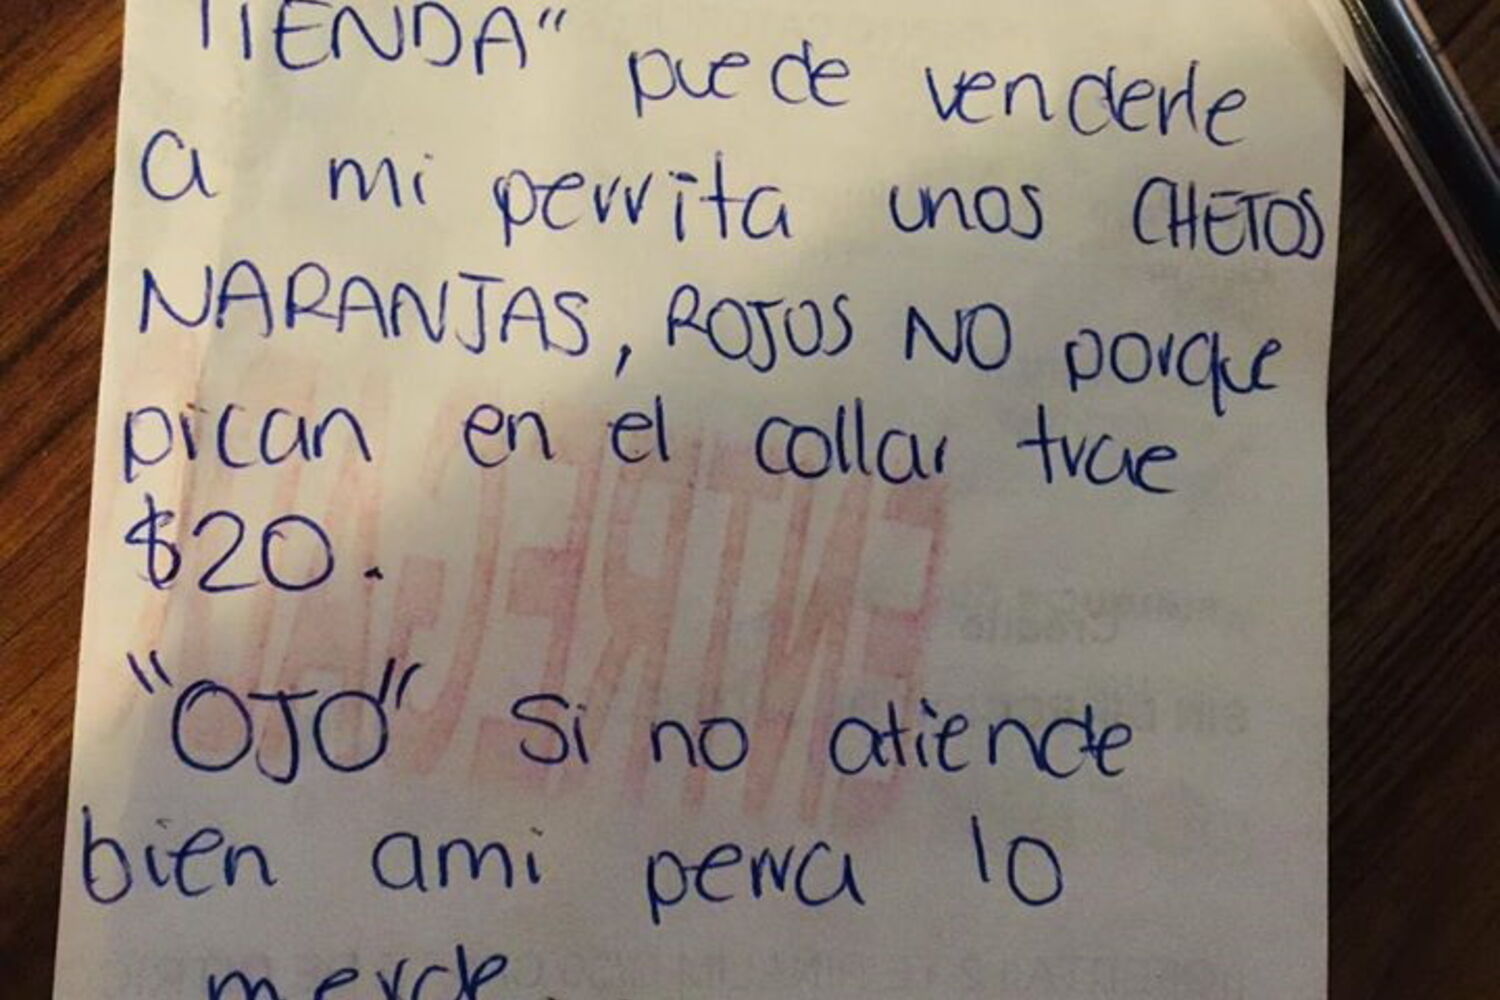 TIENDA" puede venderle
a mi perrita unos CHETOS
NARANJAS, ROJOS NO porque
pican en el collar trae
$20.
"OJO" Si no atiende
bien ami perra lo
merde.
ENTREGAD
Crédito